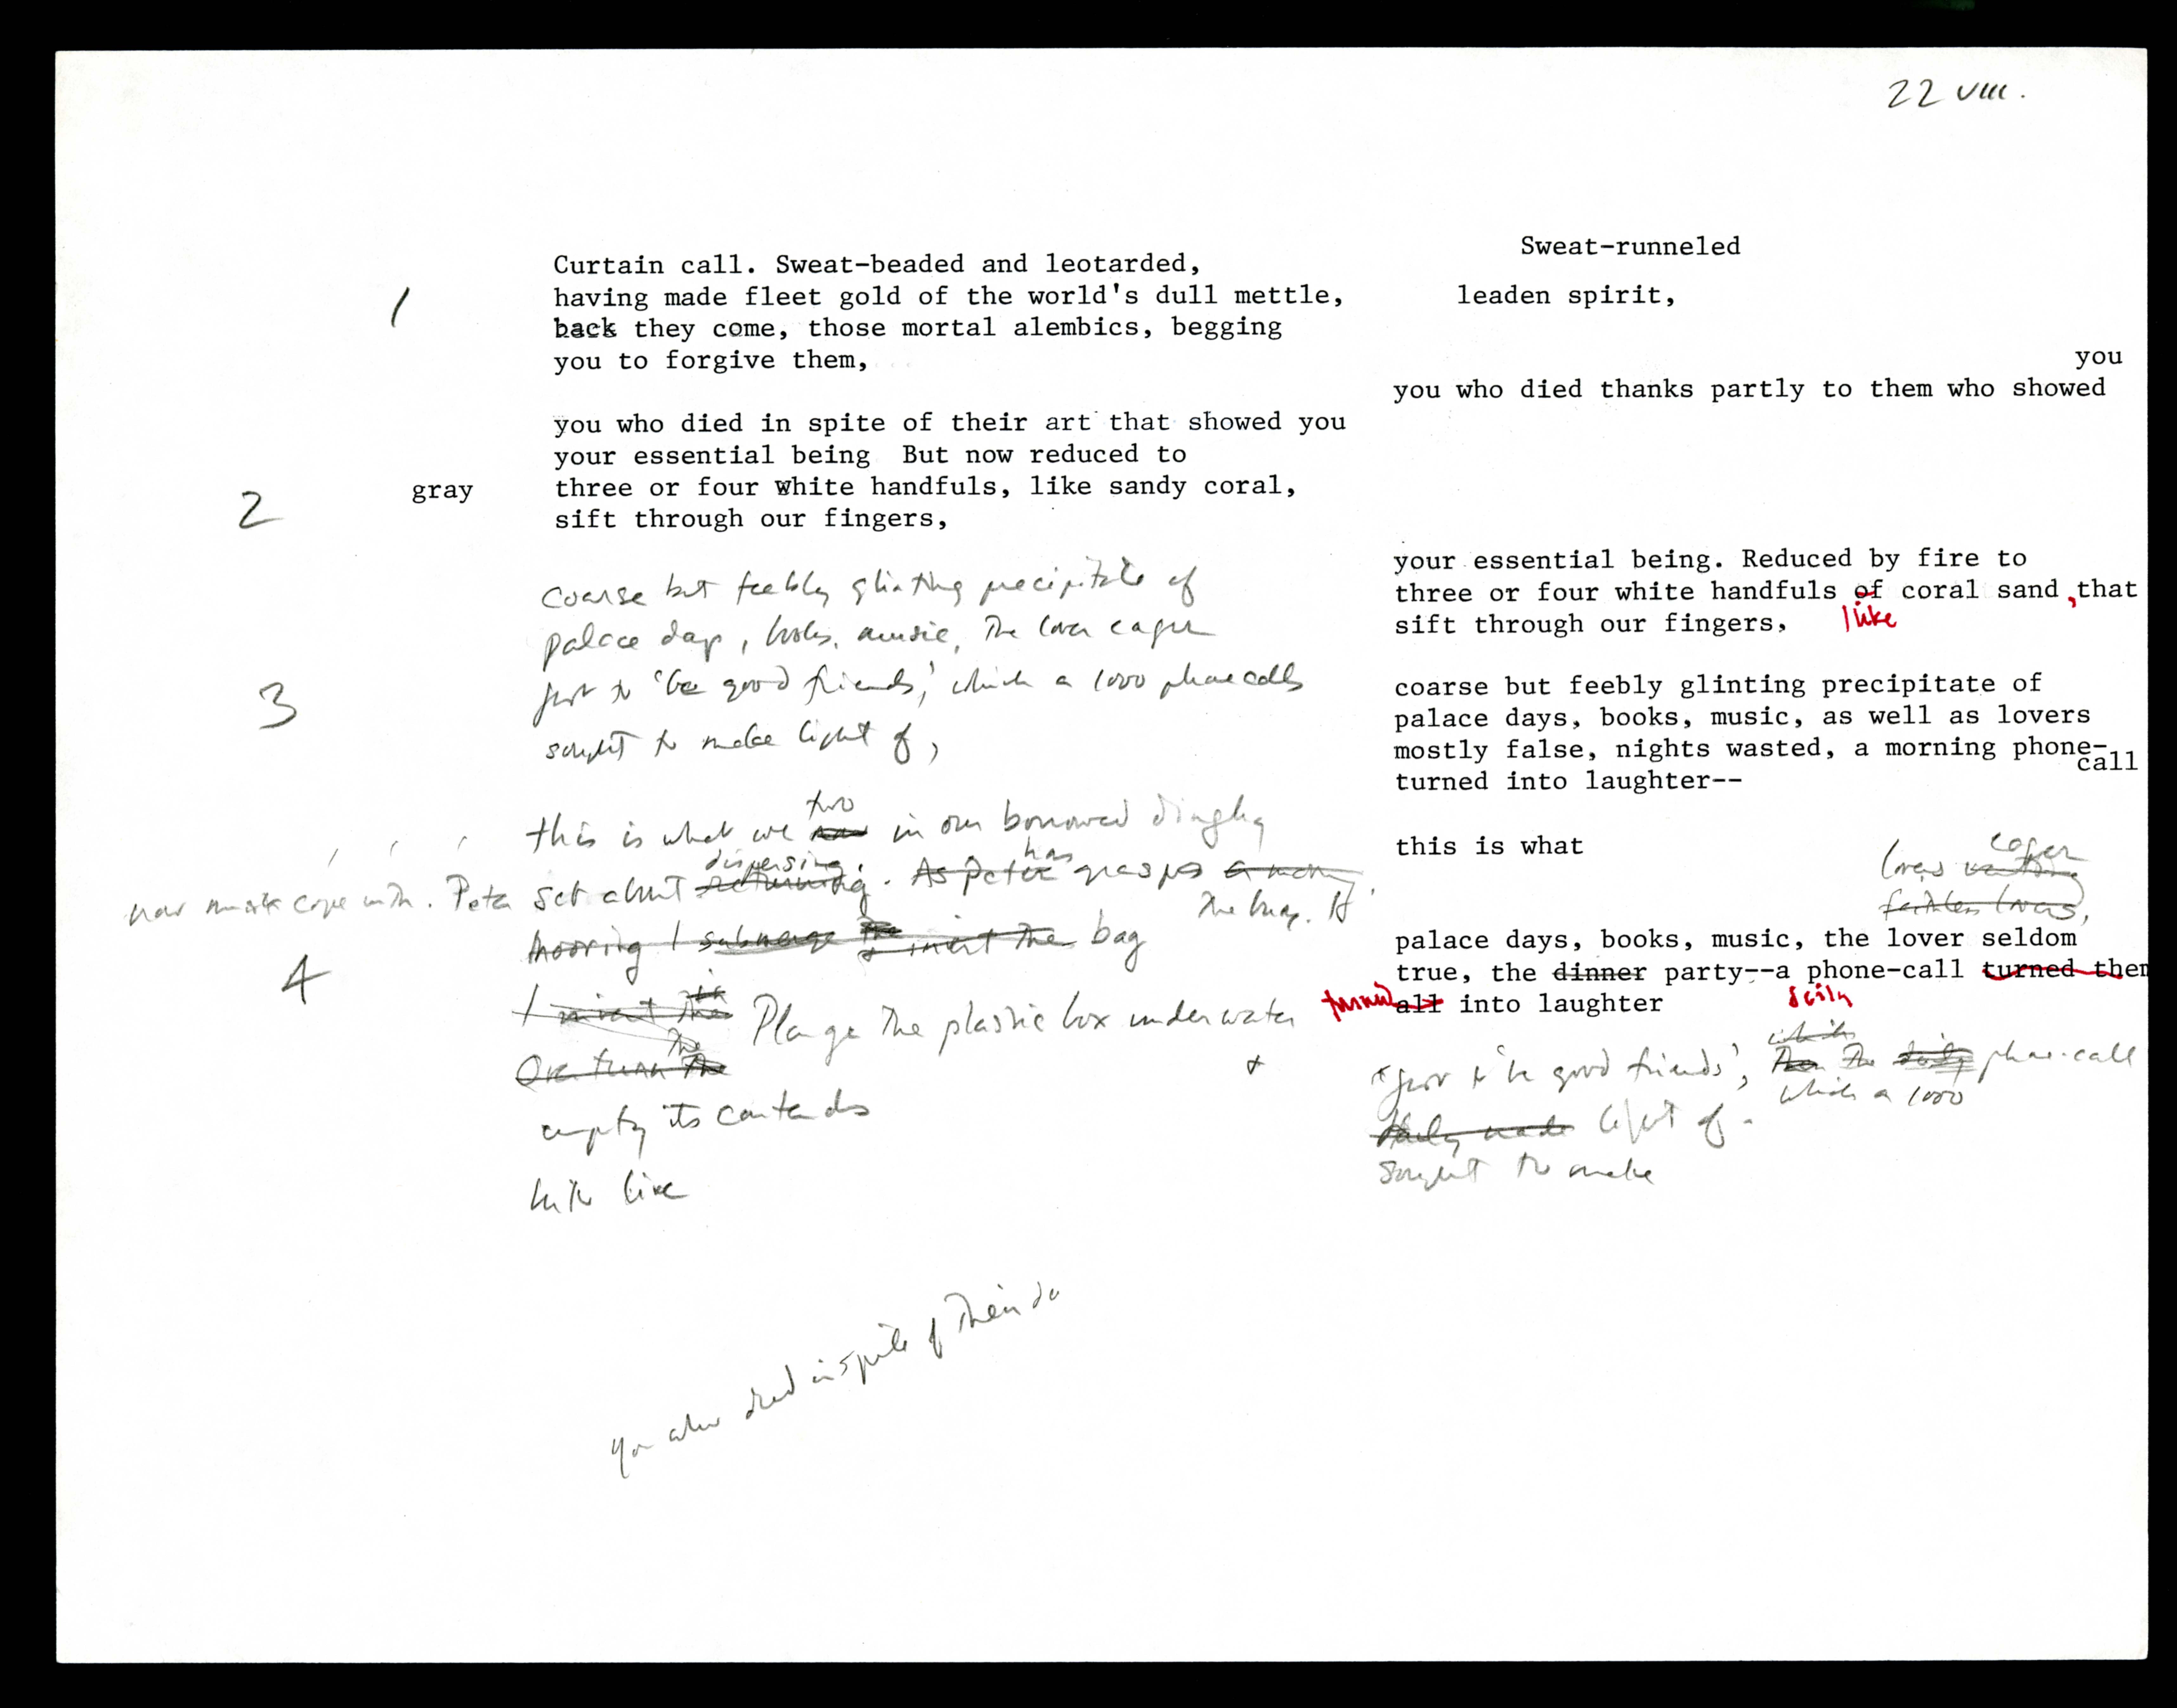 22 VIII.
Sweat-runneled
Curtain call. Sweat-beaded and leotarded,
1
having made fleet gold of the world's dull mettle,
leaden spirit,
back they come, those mortal alembics, begging
you to forgive them,
you
you who died thanks partly to them who showed
you who died in spite of their art that showed you
your essential being But now reduced to
2
gray
three or four white handfuls, like sandy coral,
sift through our fingers,
coarse but feebly glinting precipitate of
palace days, books, music, the lover eager
3
just to 'be good friends,' which a 1000 phone calls
sought to make light of,
your essential being. Reduced by fire to
three or four white handfuls of coral sand, that
like
sift through our fingers,
coarse but feebly glinting precipitate of
palace days, books, music, as well as lovers
mostly false, nights wasted, a morning phone-
call
turned into laughter--
two
this is what we in our borrowed dinghy
dispersing. has
now must cope with. Peter set about returning. As Peter grasps a mooring
the buoy. I
mooring I submerge the & invert the bag
4
I invert the Plunge the plastic box underwater
the
Overturn the
&
empty its contents
into live
this is what
eager
lovers wanting
faithless lovers,
palace days, books, music, the lover seldom
true, the dinner party--a phone-call turned them
turned all into laughter
daily
which
"just to be good friends', Then the daily phone-call
which a 1000
Daily made light of-
sought to make
you who died in spite of their da